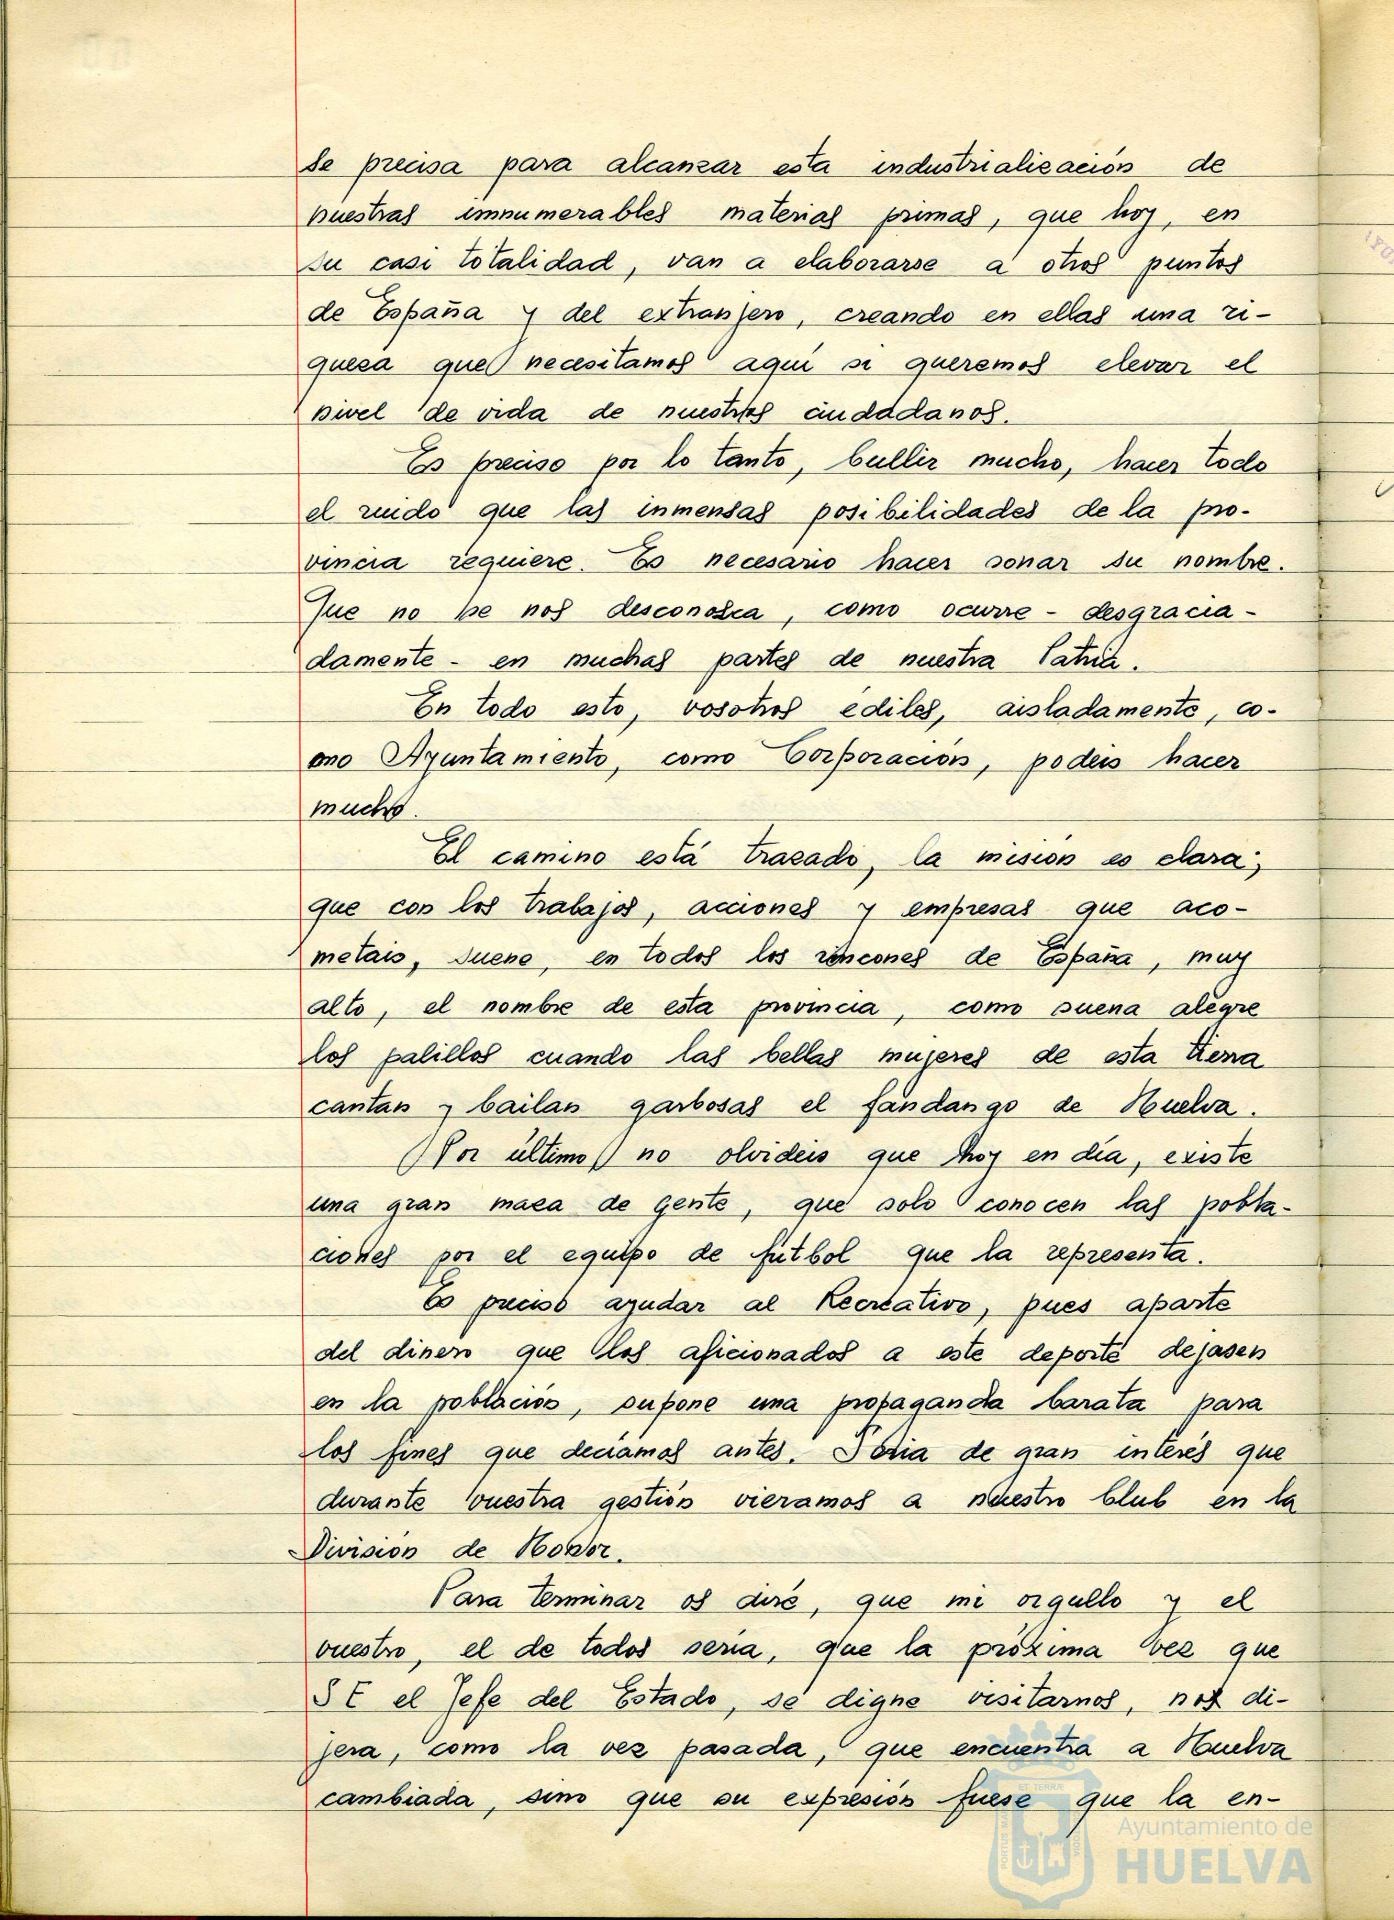 se precisa para alcanzar esta industrialización de
nuestras imnumerables materias primas, que hoy, en
su casi totalidad, van a elaborarse a otros puntos
de España y del extranjero, creando en ellas una ri-
queza que necesitamos aquí si queremos elevar el
nivel de vida de nuestros ciudadanos.
Es preciso por lo tanto, bullir mucho, hacer todo
el ruido que las inmensas posibilidades de la pro-
vincia requiere. Es necesario hacer sonar su nombre.
Que no se nos desconozca, como ocurre - desgracia-
damente - en muchas partes de nuestra Patria.
En todo esto, vosotros ediles, aisladamente, co-
mo Ayuntamiento, como Corporación, podeis hacer
mucho.
El camino está trazado, la misión es clara;
que con los trabajos, acciones y empresas que aco-
metais, suene, en todos los rincones de España, muy
alto, el nombre de esta provincia, como suena alegre
los palillos cuando las bellas mujeres de esta tierra
cantan y bailan garbosas el fandango de Huelva.
Por último no olvideis que hoy en día, existe
una gran masa de gente, que solo conocen las pobla-
ciones por el equipo de fútbol que la representa.
Es preciso ayudar al Recreativo, pues aparte
del dinero que los aficionados a este deporte dejasen
en la población, supone una propaganda barata para
los fines que deciamos antes. Seria de gran interés que
durante vuestra gestión vieramos a nuestro Club en la
División de Honor.
Para terminar os diré, que mi orgullo y el
vuestro, el de todos seria, que la próxima vez que
S E el Jefe del Estado, se digne visitarnos, nos di-
jera, como la vez pasada, que encuentra a Huelva
cambiada, sino que su expresión fuese que la en-
Ayuntamiento de
HUELVA